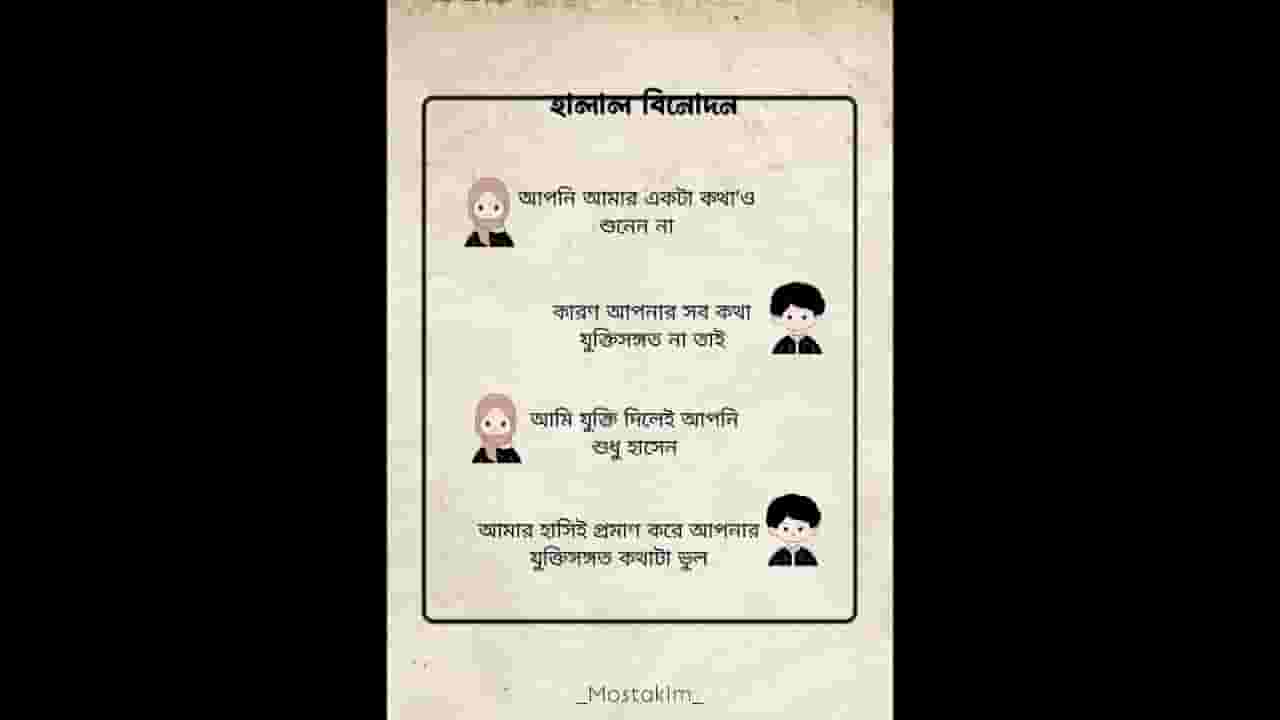 হালাল বিনোদন
আপনি আমার একটা কথা'ও
শুনেন না
কারণ আপনার সব কথা
যুক্তিসঙ্গত না তাই
আমি যুক্তি দিলেই আপনি
শুধু হাসেন
আমার হাসিই প্রমাণ করে আপনার
যুক্তিসঙ্গত কথাটা ভুল
_Mostakim_